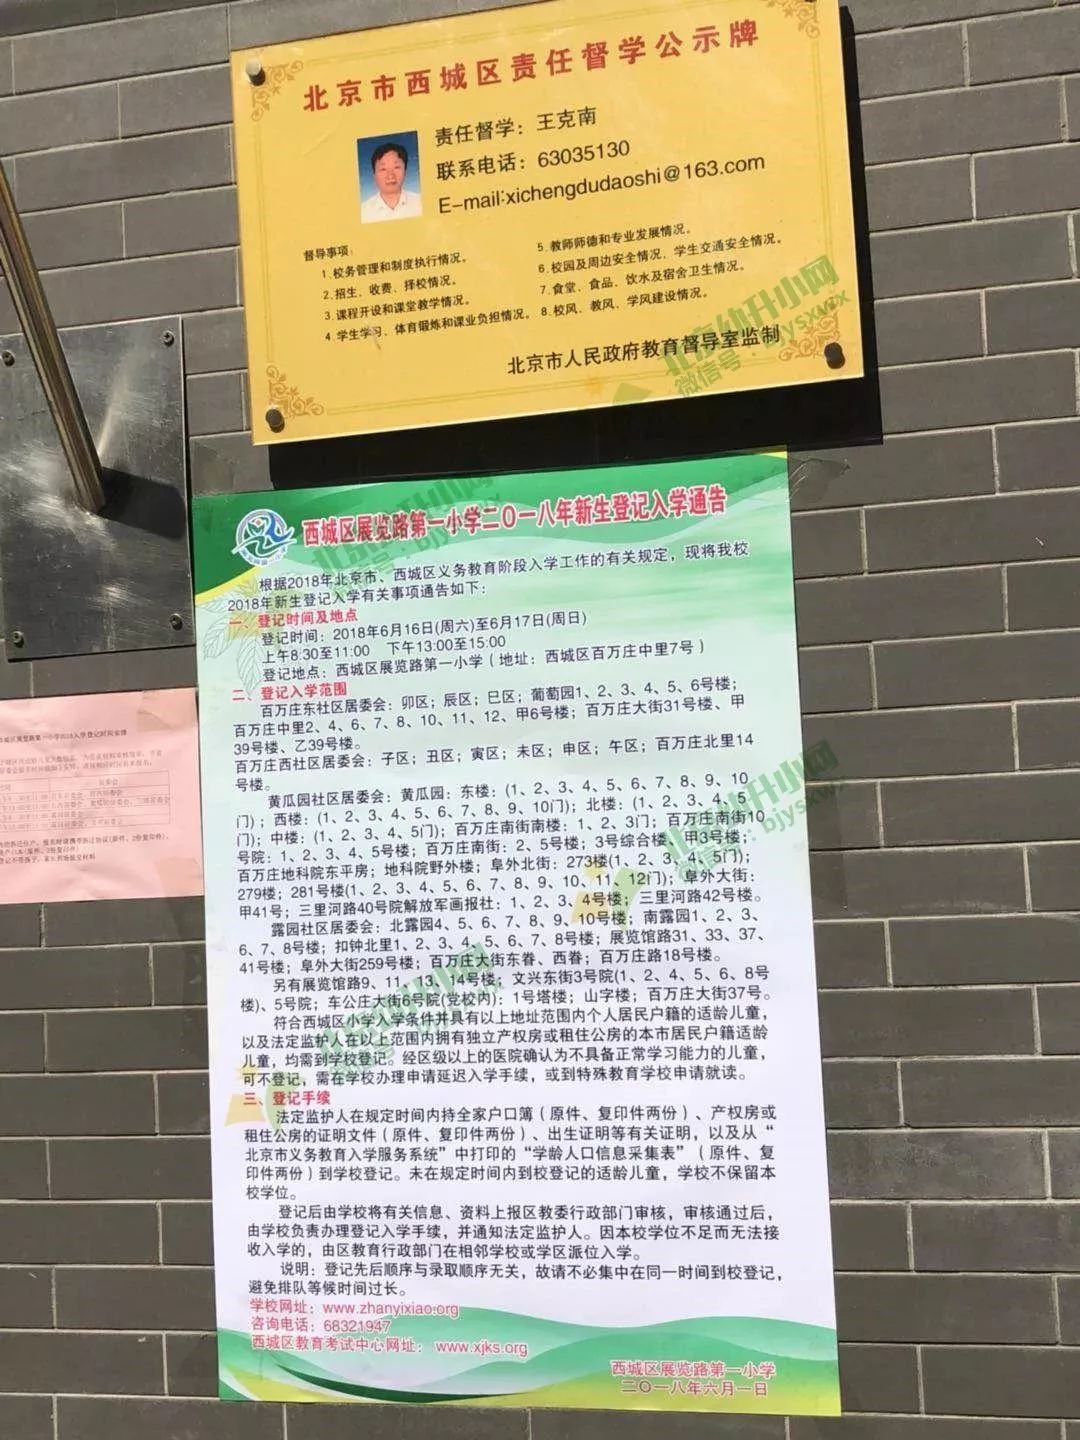 北京市西城区责任督学公示牌
责任督学：王克南
联系电话：63035130
E-mail:xichengdudaoshi@163.com
督导事项：
1.校务管理和制度执行情况。
2.招生、收费、择校情况。
3.课程开设和课堂教学情况。
4.学生学习、体育锻炼和课业负担情况。
5.教师师德和专业发展情况。
6.校园及周边安全情况、学生交通安全情况。
7.食堂、食品、饮水及宿舍卫生情况。
8.校风、教风、学风建设情况。
北京市人民政府教育督导室监制
北京幼升小网
微信号：bjysxwx
西城区展览路第一小学二〇一八年新生登记入学通告
根据2018年北京市、西城区义务教育阶段入学工作的有关规定，现将我校
2018年新生登记入学有关事项通告如下：
一、登记时间及地点
登记时间：2018年6月16日(周六)至6月17日(周日)
上午8:30至11:00 下午13:00至15:00
登记地点：西城区展览路第一小学（地址：西城区百万庄中里7号）
二、登记入学范围
百万庄东社区居委会：卯区；辰区；巳区；葡萄园1、2、3、4、5、6号楼；
百万庄中里2、4、6、7、8、10、11、12、甲6号楼；百万庄大街31号楼、甲
39号楼、乙39号楼。
百万庄西社区居委会：子区；丑区；寅区；未区；申区；午区；百万庄北里14
号楼。
黄瓜园社区居委会：黄瓜园：东楼：(1、2、3、4、5、6、7、8、9、10
门)；西楼：(1、2、3、4、5、6、7、8、9、10门)；北楼：(1、2、3、4、5
门)；中楼：(1、2、3、4、5门)；百万庄南街南楼：1、2、3门；百万庄南街10
号院：1、2、3、4、5号楼；百万庄南街：2、5号楼；3号综合楼；甲3号楼；
百万庄地科院东平房；地科院野外楼；阜外北街：273楼(1、2、3、4、5门)；
279楼；281号楼(1、2、3、4、5、6、7、8、9、10、11、12门)；阜外大街：
甲41号；三里河路40号院解放军画报社：1、2、3、4号楼；三里河路42号楼。
露园社区居委会：北露园4、5、6、7、8、9、10号楼；南露园1、2、3、
6、7、8号楼；扣钟北里1、2、3、4、5、6、7、8号楼；展览馆路31、33、37、
41号楼；阜外大街259号楼；百万庄大街东眷、西眷；百万庄路18号楼。
另有展览馆路9、11、13、14号楼；文兴东街3号院(1、2、4、5、6、8号
楼)、5号院；车公庄大街6号院(党校内)：1号塔楼；山字楼；百万庄大街37号。
符合西城区小学入学条件并具有以上地址范围内个人居民户籍的适龄儿童，
以及法定监护人在以上范围内拥有独立产权房或租住公房的本市居民户籍适龄
儿童，均需到学校登记。经区级以上的医院确认为不具备正常学习能力的儿童，
可不登记，需在学校办理申请延迟入学手续，或到特殊教育学校申请就读。
三、登记手续
法定监护人在规定时间内持全家户口簿（原件、复印件两份）、产权房或
租住公房的证明文件（原件、复印件两份）、出生证明等有关证明，以及从“
北京市义务教育入学服务系统”中打印的“学龄人口信息采集表”（原件、复
印件两份）到学校登记。未在规定时间内到校登记的适龄儿童，学校不保留本
校学位。
登记后由学校将有关信息、资料上报区教委行政部门审核，审核通过后，
由学校负责办理登记入学手续，并通知法定监护人。因本校学位不足而无法接
收入学的，由区教育行政部门在相邻学校或学区派位入学。
说明：登记先后顺序与录取顺序无关，故请不必集中在同一时间到校登记，
避免排队等候时间过长。
学校网址：www.zhanyixiao.org
咨询电话：68321947
西城区教育考试中心网址：www.xjks.org
西城区展览路第一小学
二〇一八年六月一日